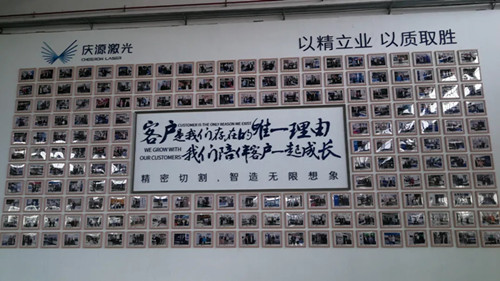 庆源激光
CHEERSON LASER
以精立业 以质取胜
CUSTOMER IS THE ONLY REASON WE EXIST
客户是我们存在的唯一理由
WE GROW WITH
OUR CUSTOMERS
我们陪伴客户一起成长
精密切割，智造无限想象